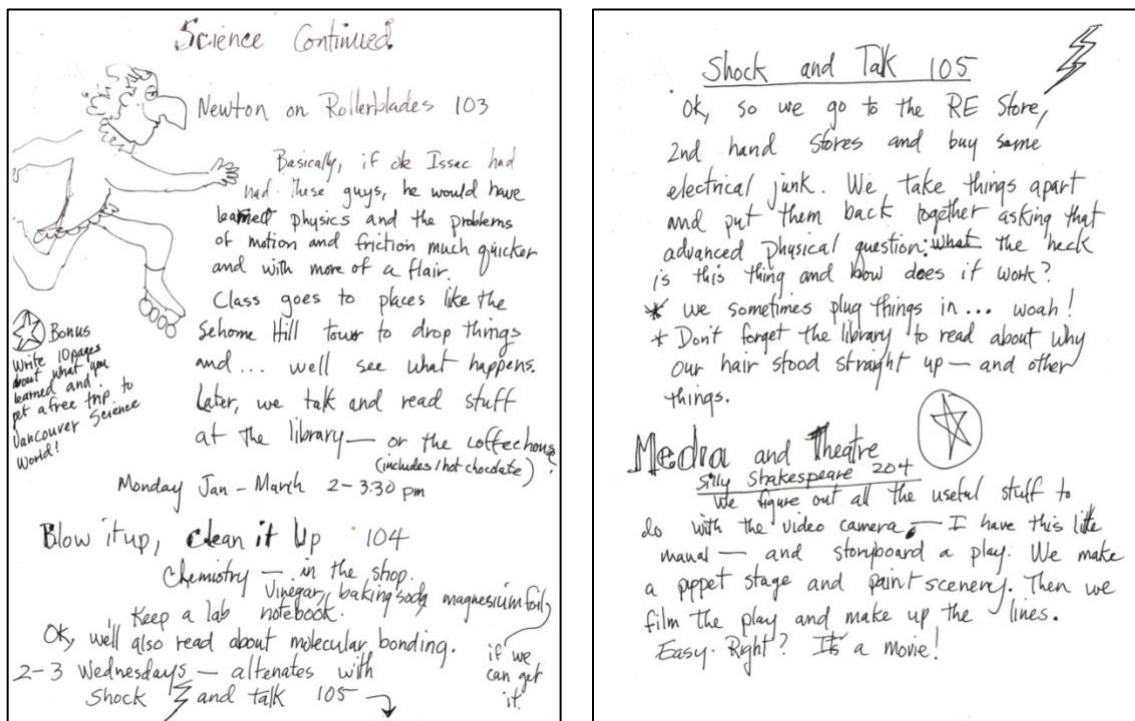 Science Continued.
Newton on Rollerblades 103
Basically, if ole Issac had
had these guys, he would have
learned physics and the problems
of motion and friction much quicker
and with more of a flair.
Class goes to places like the
Sehome Hill tower to drop things
and... well see what happens.
Later, we talk and read stuff
at the library — or the coffeehouse
(includes 1 hot chocolate)
Monday Jan - March 2-3:30 pm
Bonus
Write 10 pages
about what you
learned and
get a free trip to
Vancouver Science
World!
Blow it up, clean it Up 104
Chemistry — in the shop.
Vinegar, baking soda, magnesium foil,
if we
can get
it.
Keep a lab notebook.
Ok, we'll also read about molecular bonding.
2-3 Wednesdays — altenates with
Shock and talk 105
Shock and Talk 105
Ok, so we go to the RE Store,
2nd hand stores and buy some
electrical junk. We take things apart
and put them back together asking that
advanced physical question: what the heck
is this thing and how does it work?
* we sometimes plug things in... woah!
* Don't forget the library to read about why
our hair stood straight up — and other
things.
Media and Theatre
Silly Shakespeare 204
We figure out all the useful stuff to
do with the video camera, — I have this little
manual — and storyboard a play. We make
a puppet stage and paint scenery. Then we
film the play and make up the lines.
Easy. Right? It's a movie!